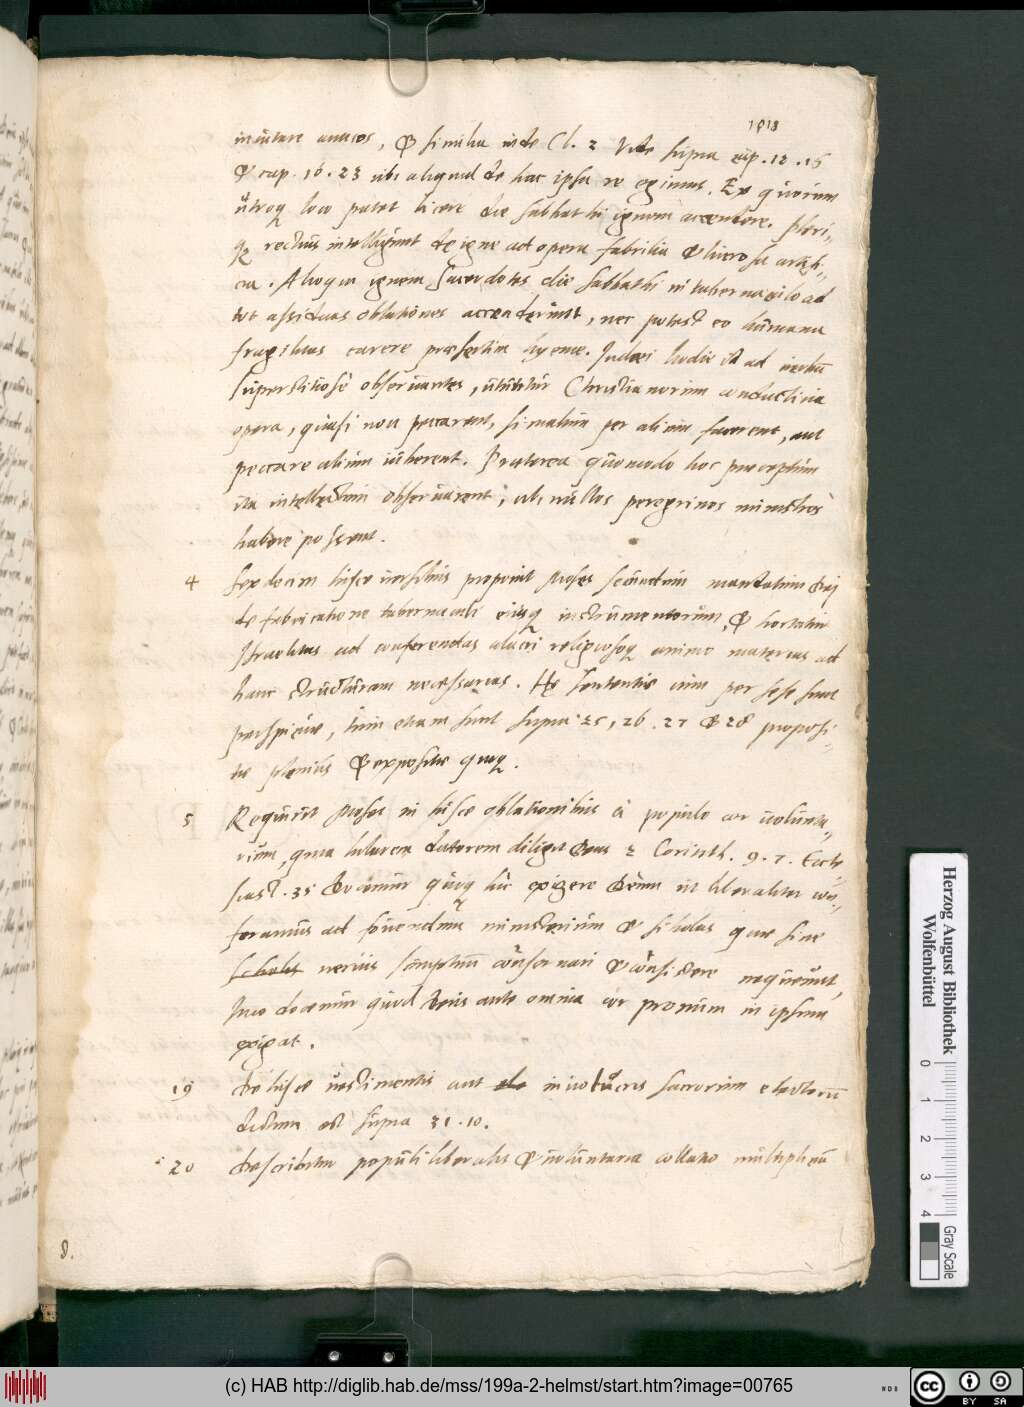 1818
invitare amicos, & similia inde Cl. 2 Vide supra cap. 12. 16
& cap. 16. 23 ubi aliquid de hac ipsa re egimus. Ex quorum
utroq loco patet licere die sabbathi ignem accendere. pleri„
q rectius intelligunt de igne ad opera fabrilia &
Alioqui ignem sacerdotes die sabbathi in tabernaculo ad
assiduas oblationes accenderunt, nec potest eo humana
fragilitas carere præsertim hyeme. Judæi hodie id ad verbu
superstitiose observantes, utuntur Christianorum conductitia
opera, quasi non peccarent, si malum per alium facerent, aut
peccare alium iuberent. Præterea quomodo hoc præceptum
ita intellectum observarent, ubi nullos peregrinos ministros
habere possent.
4 Sexdecim hisce versibus proponit Moses secundum mandatum Dei
de fabricatione tabernaculi eiusq instrumentorum, & hortatur
Israelitas ad conferendas alacri religiosoq animo materias ad
hanc structuram necessarias. Hę sententiæ cum per sese sunt
perspicuæ, tum etiam sunt supra 25, 26. 27 & 28 proposi„
tæ plenius & expositæ quoq.
5 Requirit Moses in hisce oblationibus à populo cor volunta„
rium, quia hilarem datorem diligit Deus 2 Corinth. 9. 7. Eccle„
siast. 35 Docemur quoq hic exigere Deum ut liberaliter con„
feramus ad fovendum ministerium & scholas quæ sine
scholis nervis sumptuum conservari & consistere nequeunt,
Imo docemur quod Deus ante omnia cor pronum in ipsum
exigat.
19 De hisce vestimentis aut de involucris sacrorum electorū
dictum est supra 31. 10.
20 Describitur populi liberalis & voluntaria collatio multiplicium
8.
Herzog August Bibliothek
Wolfenbüttel
0 1 2 3 4
Gray Scale
(c) HAB http://diglib.hab.de/mss/199a-2-helmst/start.htm?image=00765
cc BY SA